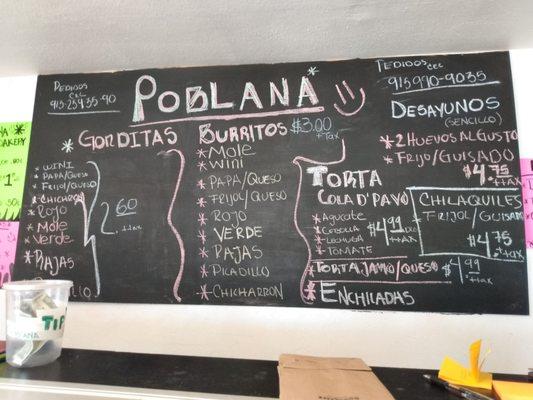 PEDIDOS
CEL
POBLANA
PEDIDOS
CEL
915 990-9035
DESAYUNOS
(SENCILLO)
* 2 HUEVOS AL GUSTO
* FRIJO/GUISADO
$4.75 +TAX
CHILAQUILES
+FRIJOL/GUISADOS
$4.75
+tax
GORDITAS *
* WINI
* PAPA/QUESO
* FRIJO/QUESO
* CHICHARRON
* ROJO
* Mole
* Verde
* RAJAS
2.60
+TAX
BURRITOS $3.00
+TAX
* Mole
* Wini
* PAPA/QUESO
* FRIJOL/QUESO
* ROJO
* VERDE
* RAJAS
* PICADILLO
* CHICHARRON
TORTA
COLA D' PAVO
* Aguacate
* Cebolla
* Lechuga
* TOMATE
$4.99
+TAX
* TORTA JAMO/QUESO $4.99
+tax
* ENCHILADAS
TIP